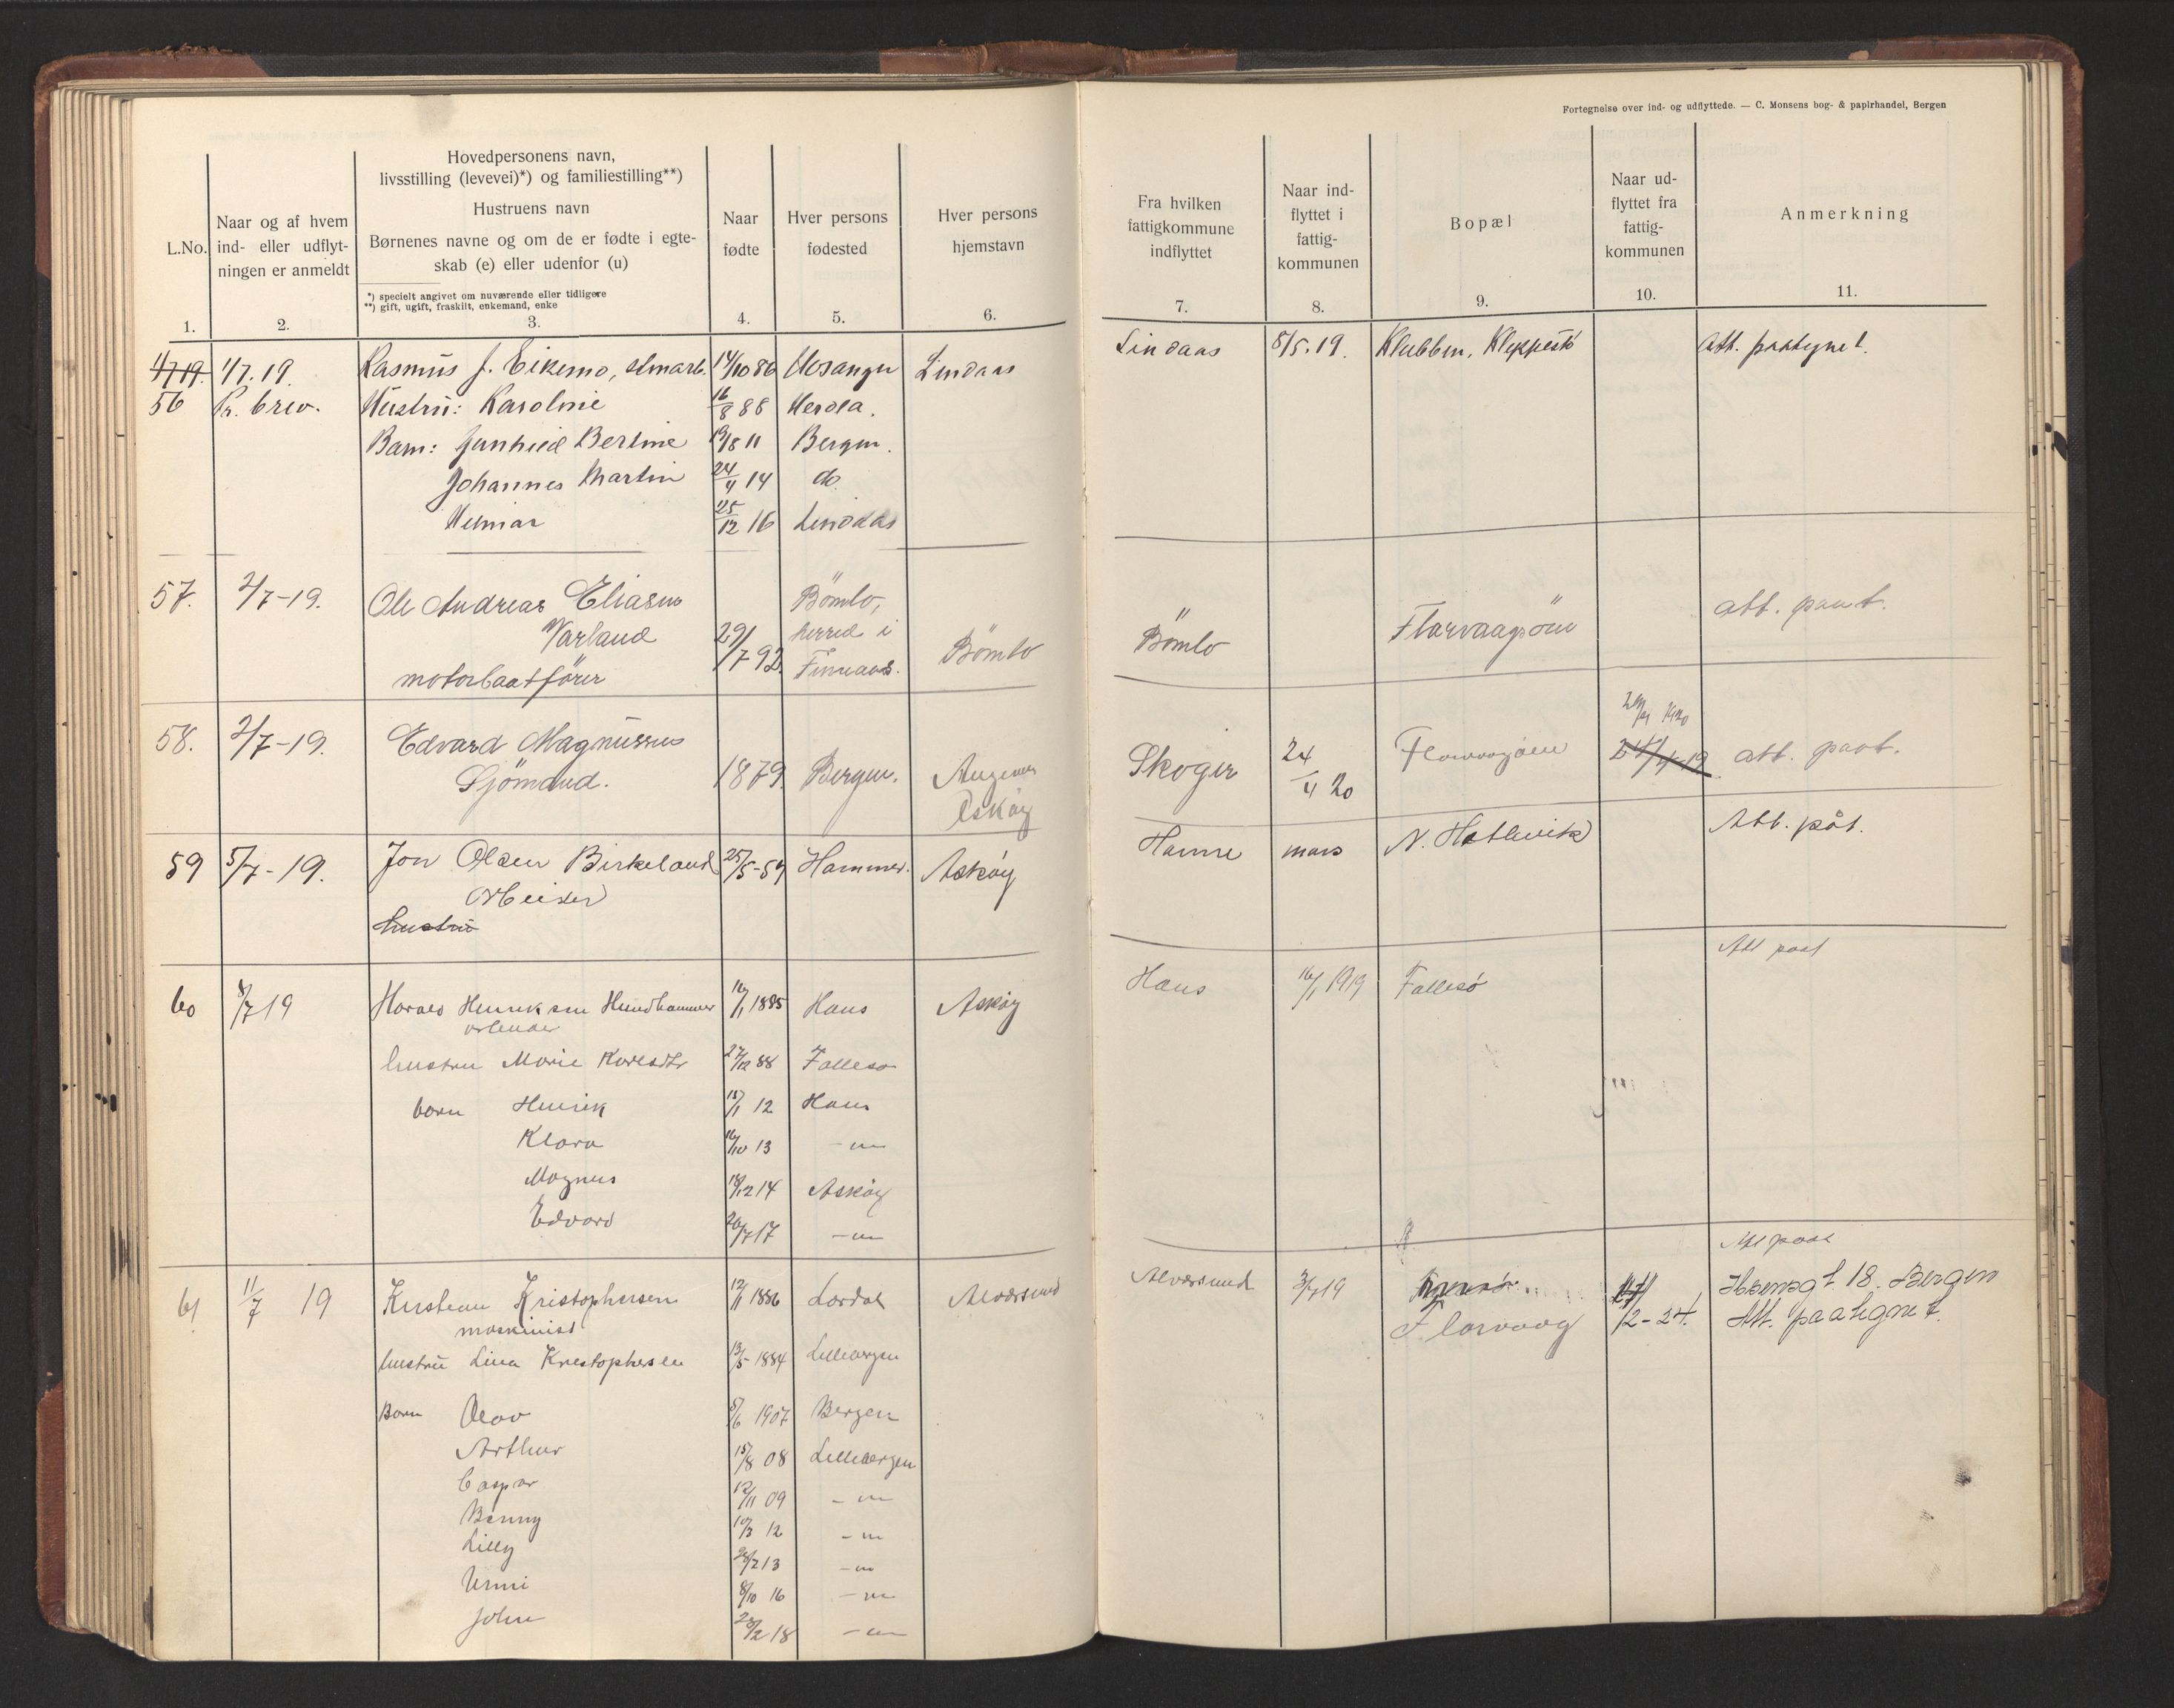 Fortegnelse over ind- og udflyttede. — C. Monsens bog- & papirhandel, Bergen
L.No.
Naar og af hvem
ind- eller udflyt-
ningen er anmeldt
Hovedpersonens navn,
livsstilling (levevei)*) og familiestilling**)
Hustruens navn
Børnenes navne og om de er fødte i egte-
skab (e) eller udenfor (u)
*) specielt angivet om nuværende eller tidligere
**) gift, ugift, fraskilt, enkemand, enke
Naar
fødte
Hver persons
fødested
Hver persons
hjemstavn
Fra hvilken
fattigkommune
indflyttet
Naar ind-
flyttet i
fattig-
kommunen
Bopæl
Naar ud-
flyttet fra
fattig-
kommunen
Anmerkning
1. 2. 3. 4. 5. 6. 7. 8. 9. 10. 11.
1/7 19. 1/7.19. Rasmus J. Eikemo, 14/10 86 Mosanger Lindaas Lindaas 8/5.19. Klubben, Kleppestö Att. paategnet.
56 Pr. brev. Hustru: Karoline 16/8 88 Herdla.
Barn: Gunhild Bertine 19/8 11 Bergen.
Johannes Martin 24/4 14 do.
Helmar 25/12 16 Lindaas
57. 2/7-19. Ole Andreas Elias Bömlo, att. paat.
Varland 29/7 92 herred i Bömlo Bömlo Florvaagsöen
motorbaatförer Finnaas.
58. 2/7-19. Edvard Magnussen 1920
Sjömand. 1879. Bergen. Skoger 24/4 20 Florvaagöen 24/4-19 att. paat.
Askøy
59 5/7-19. Jon Olsen Birkeland 25/5-59 Hammer. Askøy Hamre mars N. Hetlevik Att. påt.
Arbeider
hustru
60 8/7 19 Harald Henriksen Hundhammer 16/1 1885 Haus Askøy Haus 16/1 1919 Follesø Att paat
arbeider
hustru Marie Karlsdtr 27/12 88 Follesø
børn Henrik 18/1 12 Haus
Klara 16/10 13 -"-
Magnus 18/12 14 Askøy
Edvard 20/7 17 -"-
61 11/7 19 Kristian Kristophersen 12/11 1886 Lardal Alversund Alversund 3/7 19 Att paat
maskinist Florvaag 12-24. Att. paategnet.
18. Bergen
hustru Lina Kristophersen 13/5 1884 Lillebergen
Børn Olav 5/6 1907 Bergen
Arthur 15/8 08 Lillebergen
Caspar 12/11 09 -"-
Benny 10/3 12 -"-
Lilly 28/2 13 -"-
Unni 8/10 16 -"-
John 28/2 18 -"-